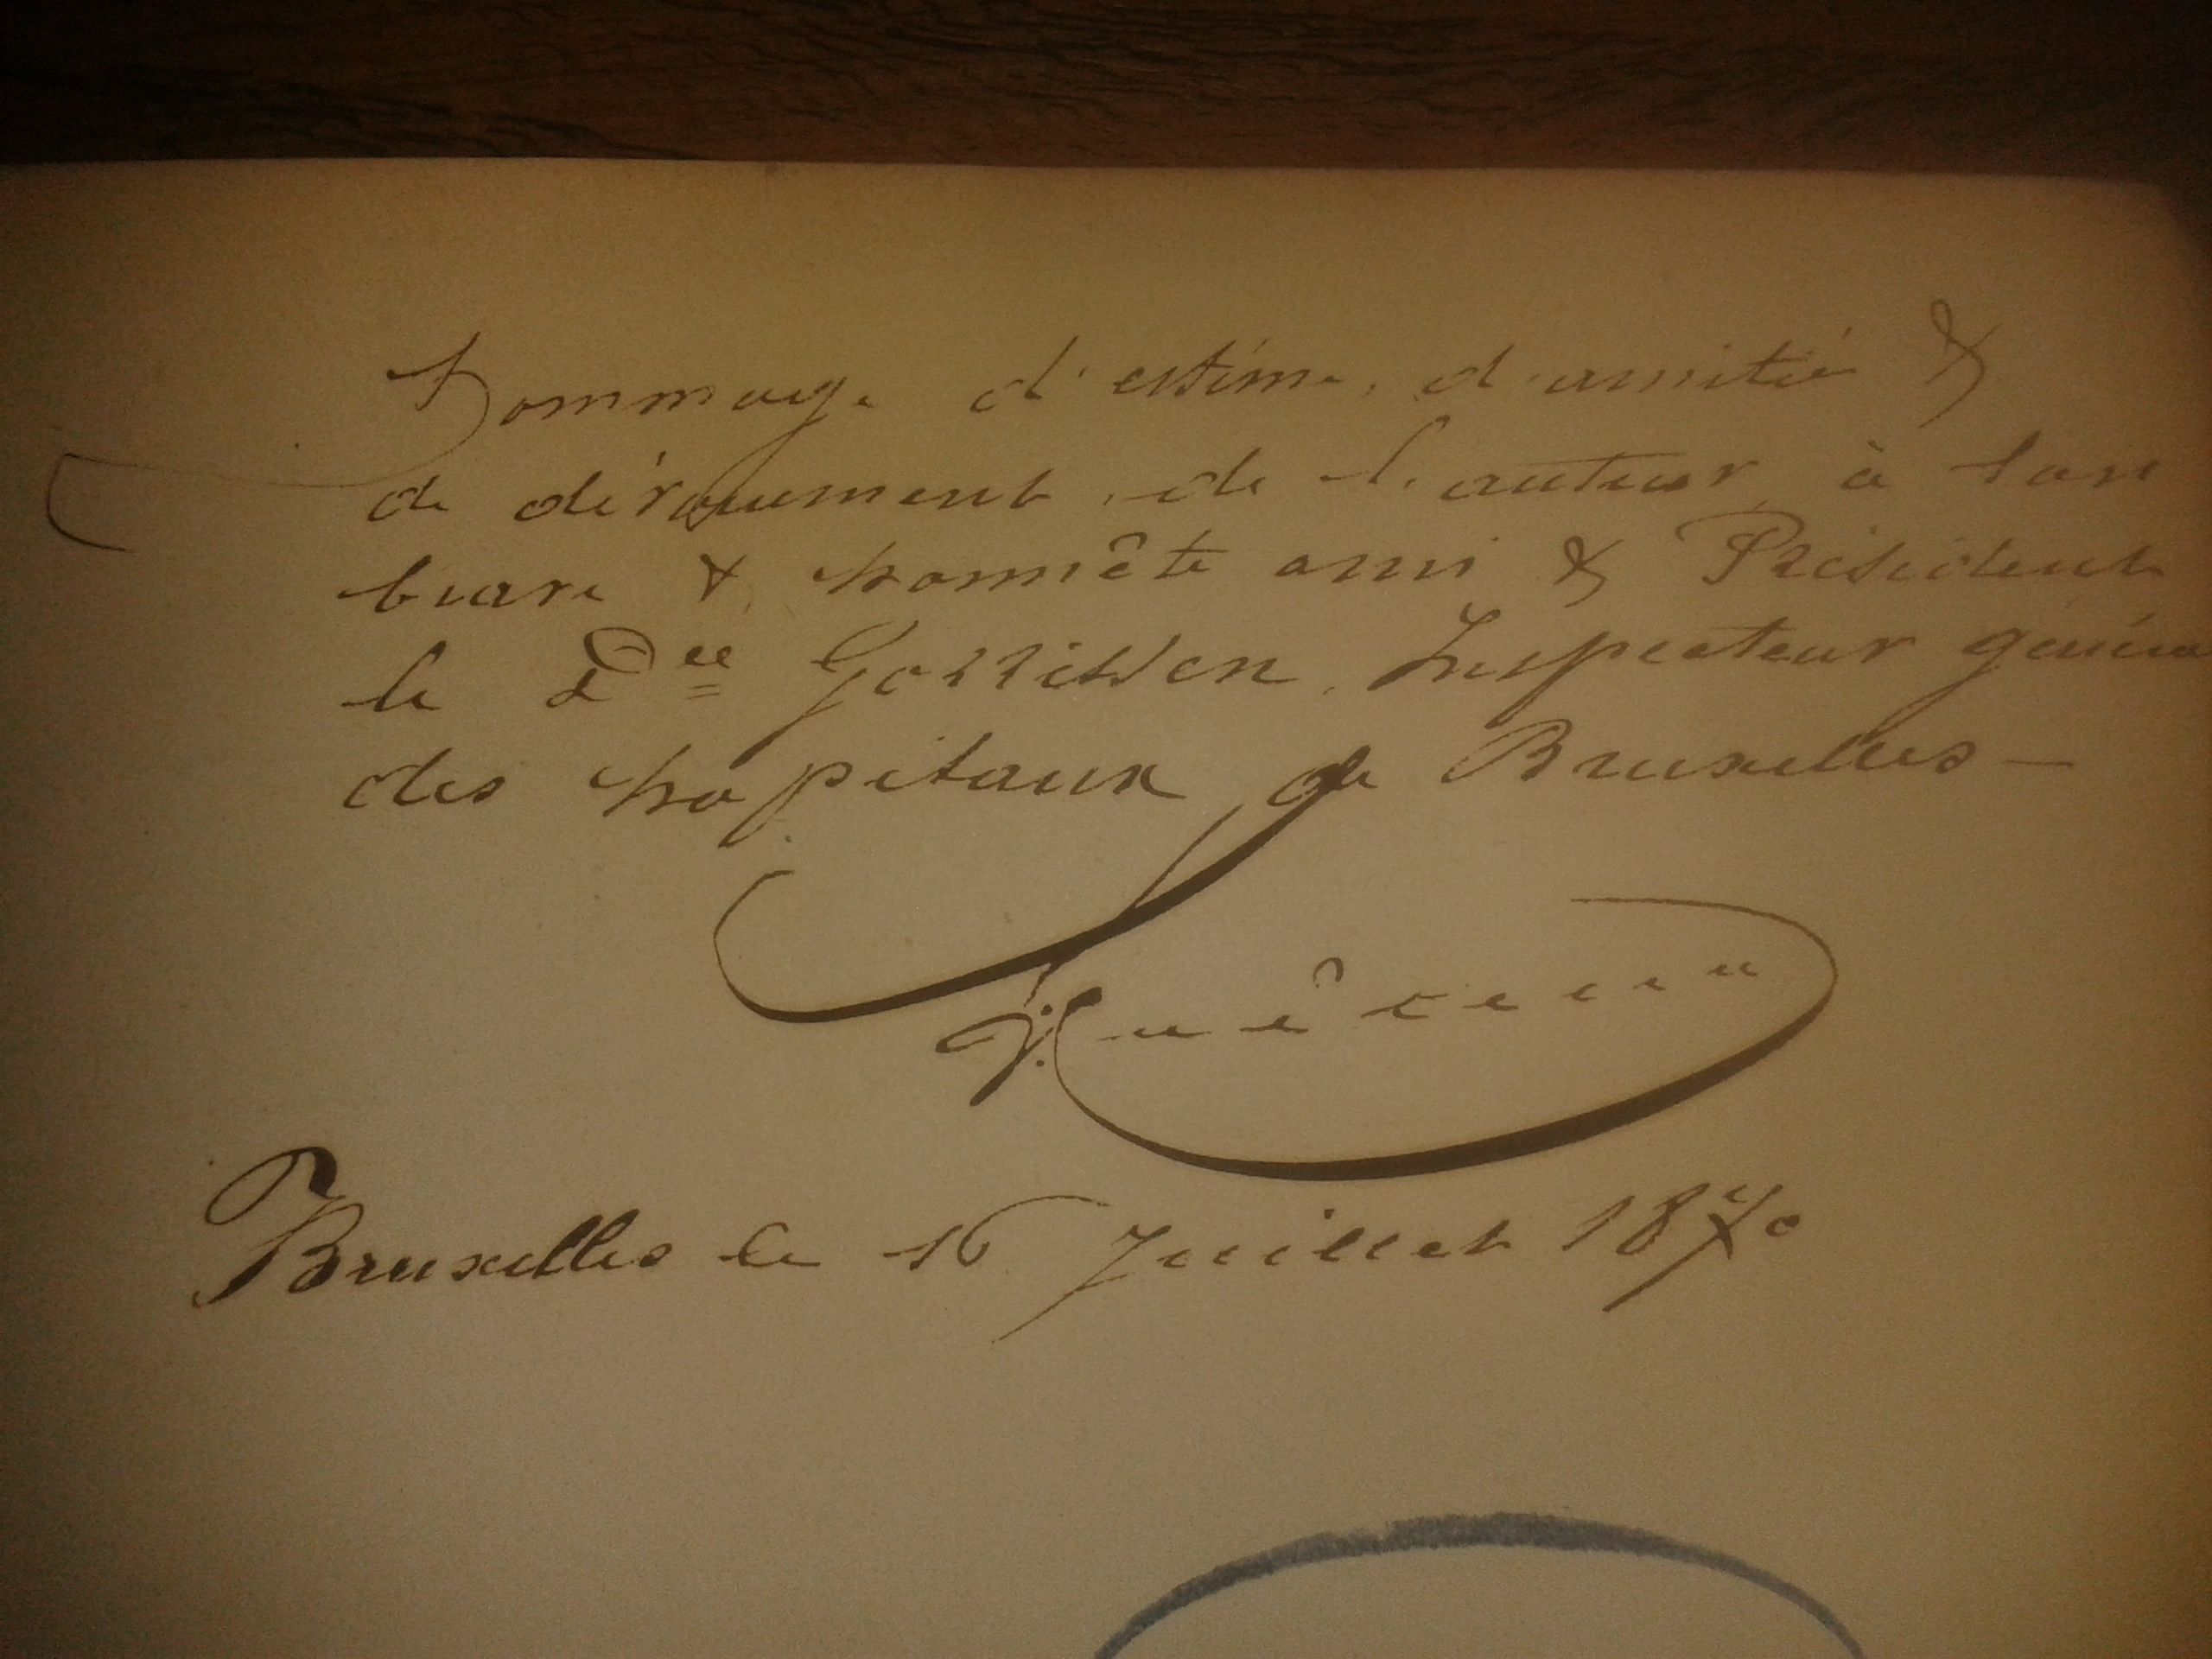 Hommage d'estime, d'amitié &
de dévouement, de l'auteur, à son
brave & honnête ami & Président
le Dr Gorrissen, Inspecteur généra
des hopitaux de Bruxelles —
Bruxelles le 16 Juillet 1870